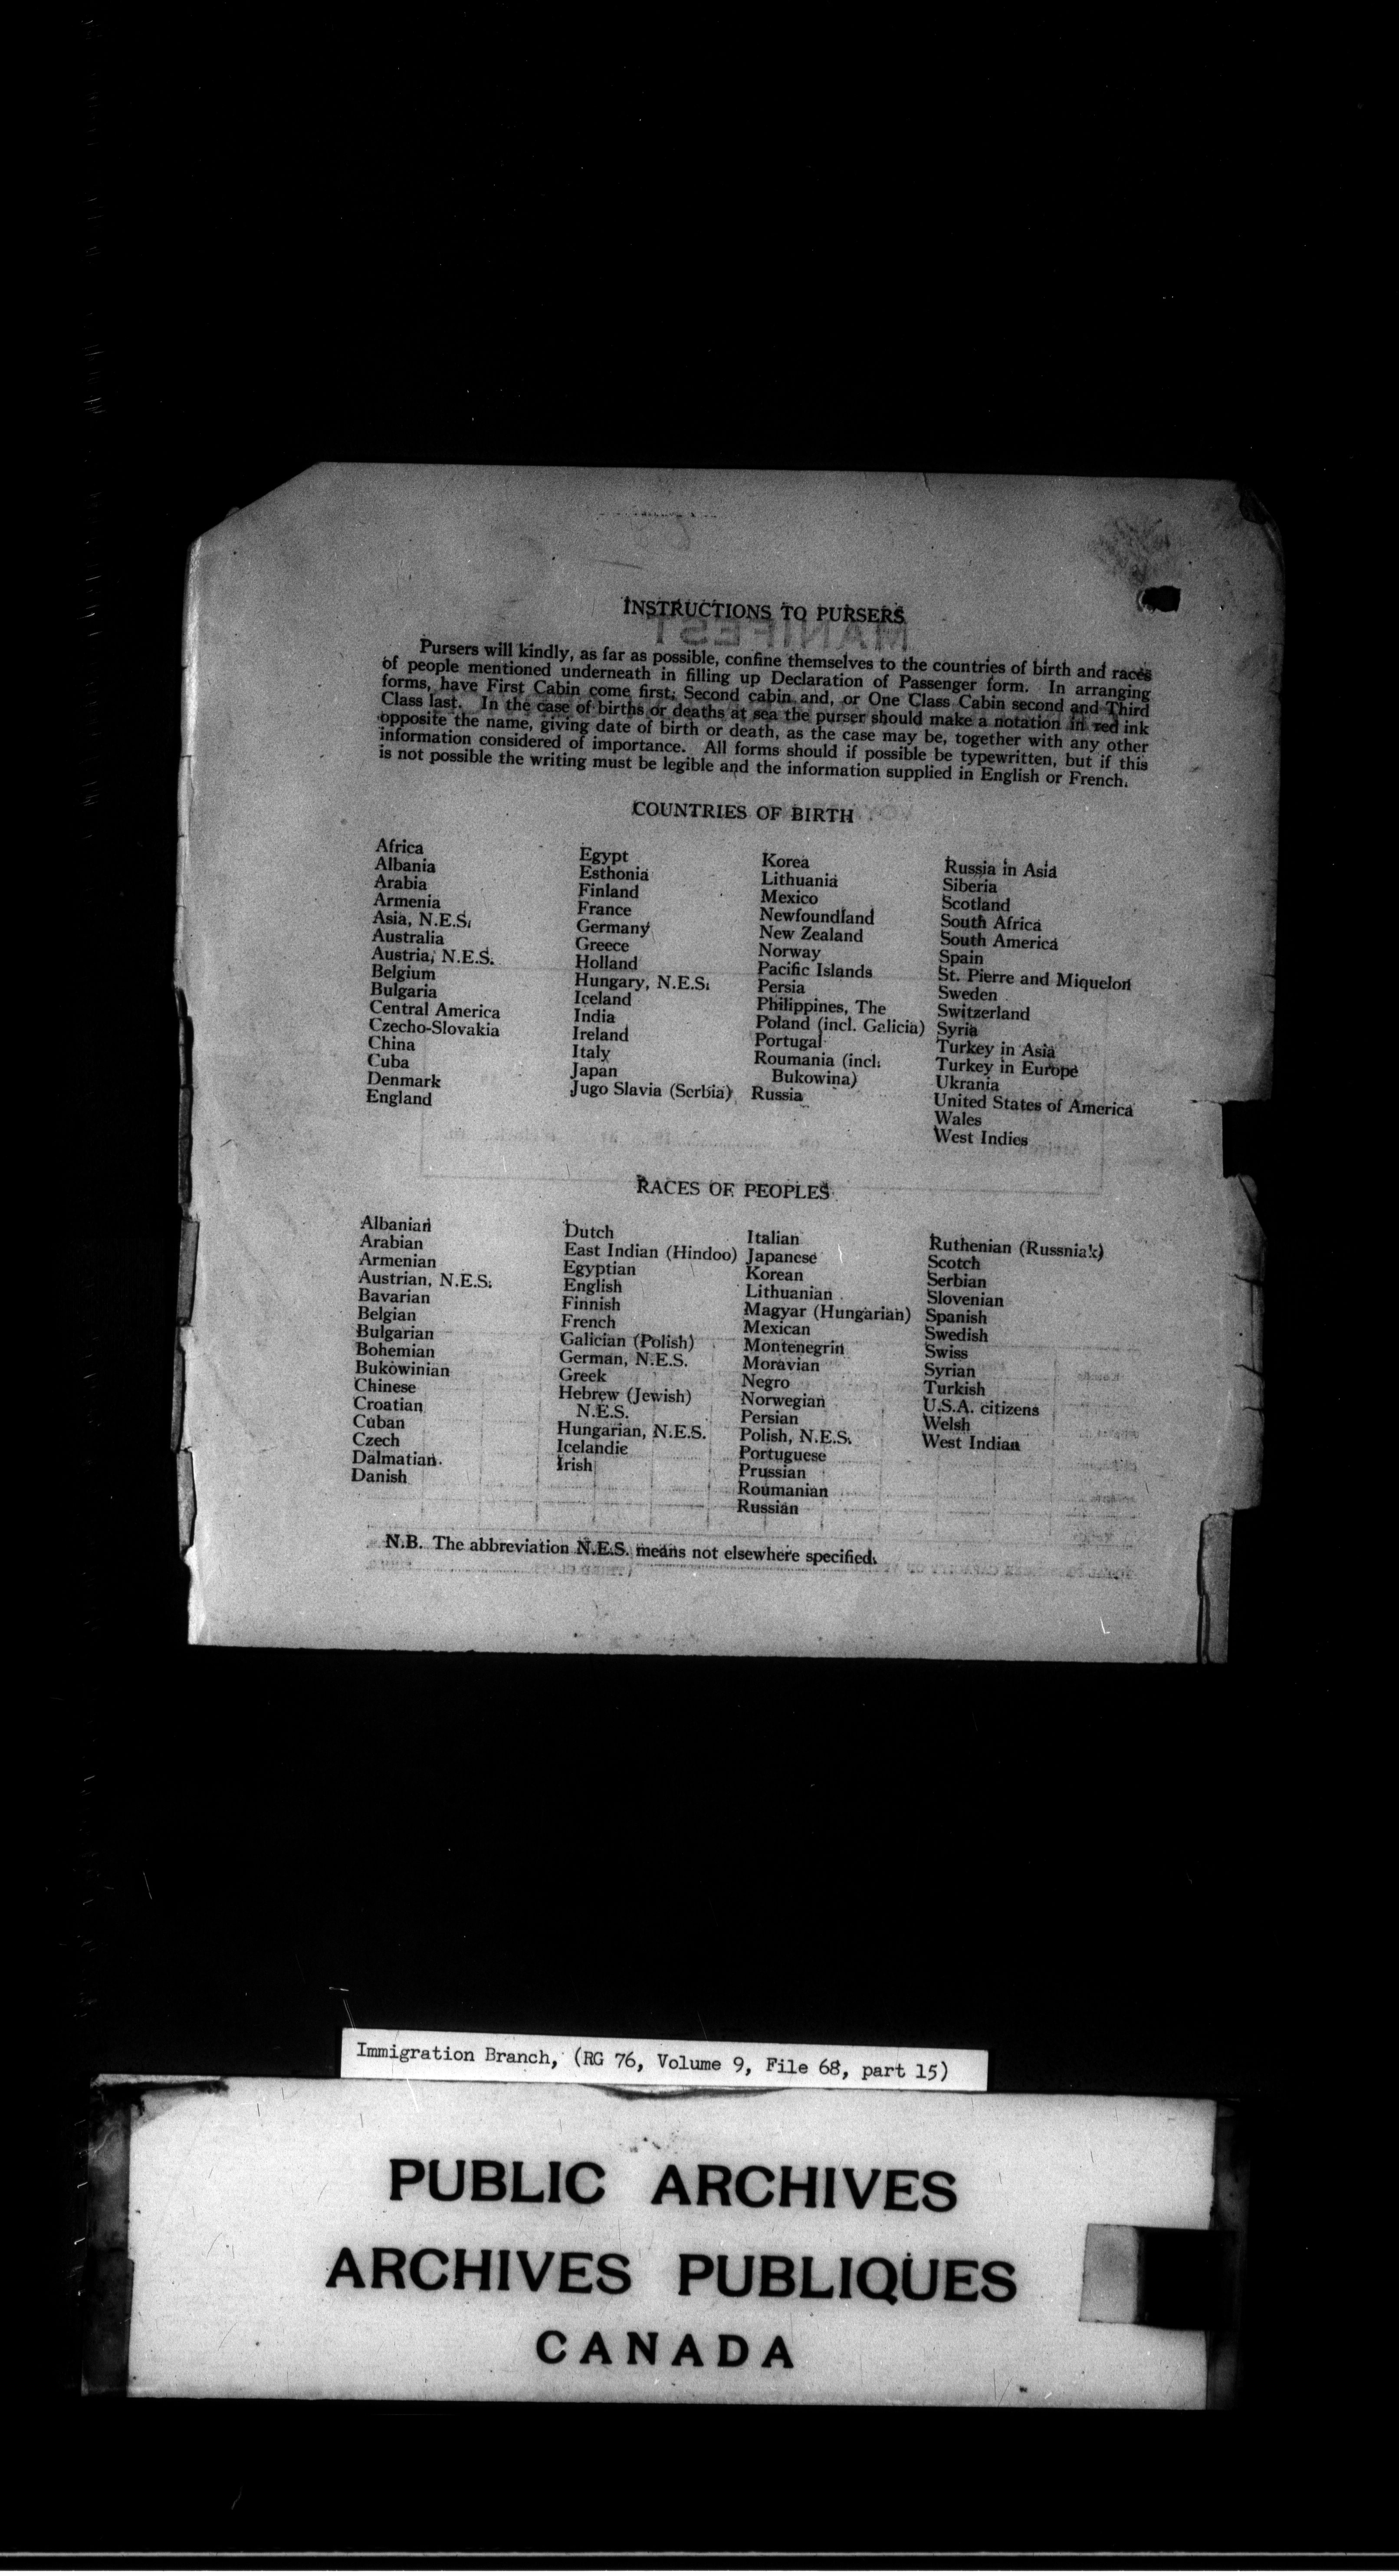 INSTRUCTIONS TO PURSERS
MANIFEST
Pursers will kindly, as far as possible, confine themselves to the countries of birth and races
of people mentioned underneath in filling up Declaration of Passenger form. In arranging
forms, have First Cabin come first; Second cabin and, or One Class Cabin second and Third
Class last. In the case of births or deaths at sea the purser should make a notation in red ink
opposite the name, giving date of birth or death, as the case may be, together with any other
information considered of importance. All forms should if possible be typewritten, but if this
is not possible the writing must be legible and the information supplied in English or French.
COUNTRIES OF BIRTH
Africa
Albania
Arabia
Armenia
Asia, N.E.S.
Australia
Austria, N.E.S.
Belgium
Bulgaria
Central America
Czecho-Slovakia
China
Cuba
Denmark
England
Egypt
Esthonia
Finland
France
Germany
Greece
Holland
Hungary, N.E.S.
Iceland
India
Ireland
Italy
Japan
Jugo Slavia (Serbia)
Korea
Lithuania
Mexico
Newfoundland
New Zealand
Norway
Pacific Islands
Persia
Philippines, The
Poland (incl. Galicia)
Portugal
Roumania (incl.
Bukowina)
Russia
Russia in Asia
Siberia
Scotland
South Africa
South America
Spain
St. Pierre and Miquelon
Sweden
Switzerland
Syria
Turkey in Asia
Turkey in Europe
Ukrania
United States of America
Wales
West Indies
RACES OF PEOPLES
Albanian
Arabian
Armenian
Austrian, N.E.S.
Bavarian
Belgian
Bulgarian
Bohemian
Bukowinian
Chinese
Croatian
Cuban
Czech
Dalmatian
Danish
Dutch
East Indian (Hindoo)
Egyptian
English
Finnish
French
Galician (Polish)
German, N.E.S.
Greek
Hebrew (Jewish)
N.E.S.
Hungarian, N.E.S.
Icelandic
Irish
Italian
Japanese
Korean
Lithuanian
Magyar (Hungarian)
Mexican
Montenegrin
Moravian
Negro
Norwegian
Persian
Polish, N.E.S.
Portuguese
Prussian
Roumanian
Russian
Ruthenian (Russniak)
Scotch
Serbian
Slovenian
Spanish
Swedish
Swiss
Syrian
Turkish
U.S.A. citizens
Welsh
West Indian
N.B. The abbreviation N.E.S. means not elsewhere specified.
Immigration Branch, (RG 76, Volume 9, File 68, part 15)
PUBLIC ARCHIVES
ARCHIVES PUBLIQUES
CANADA